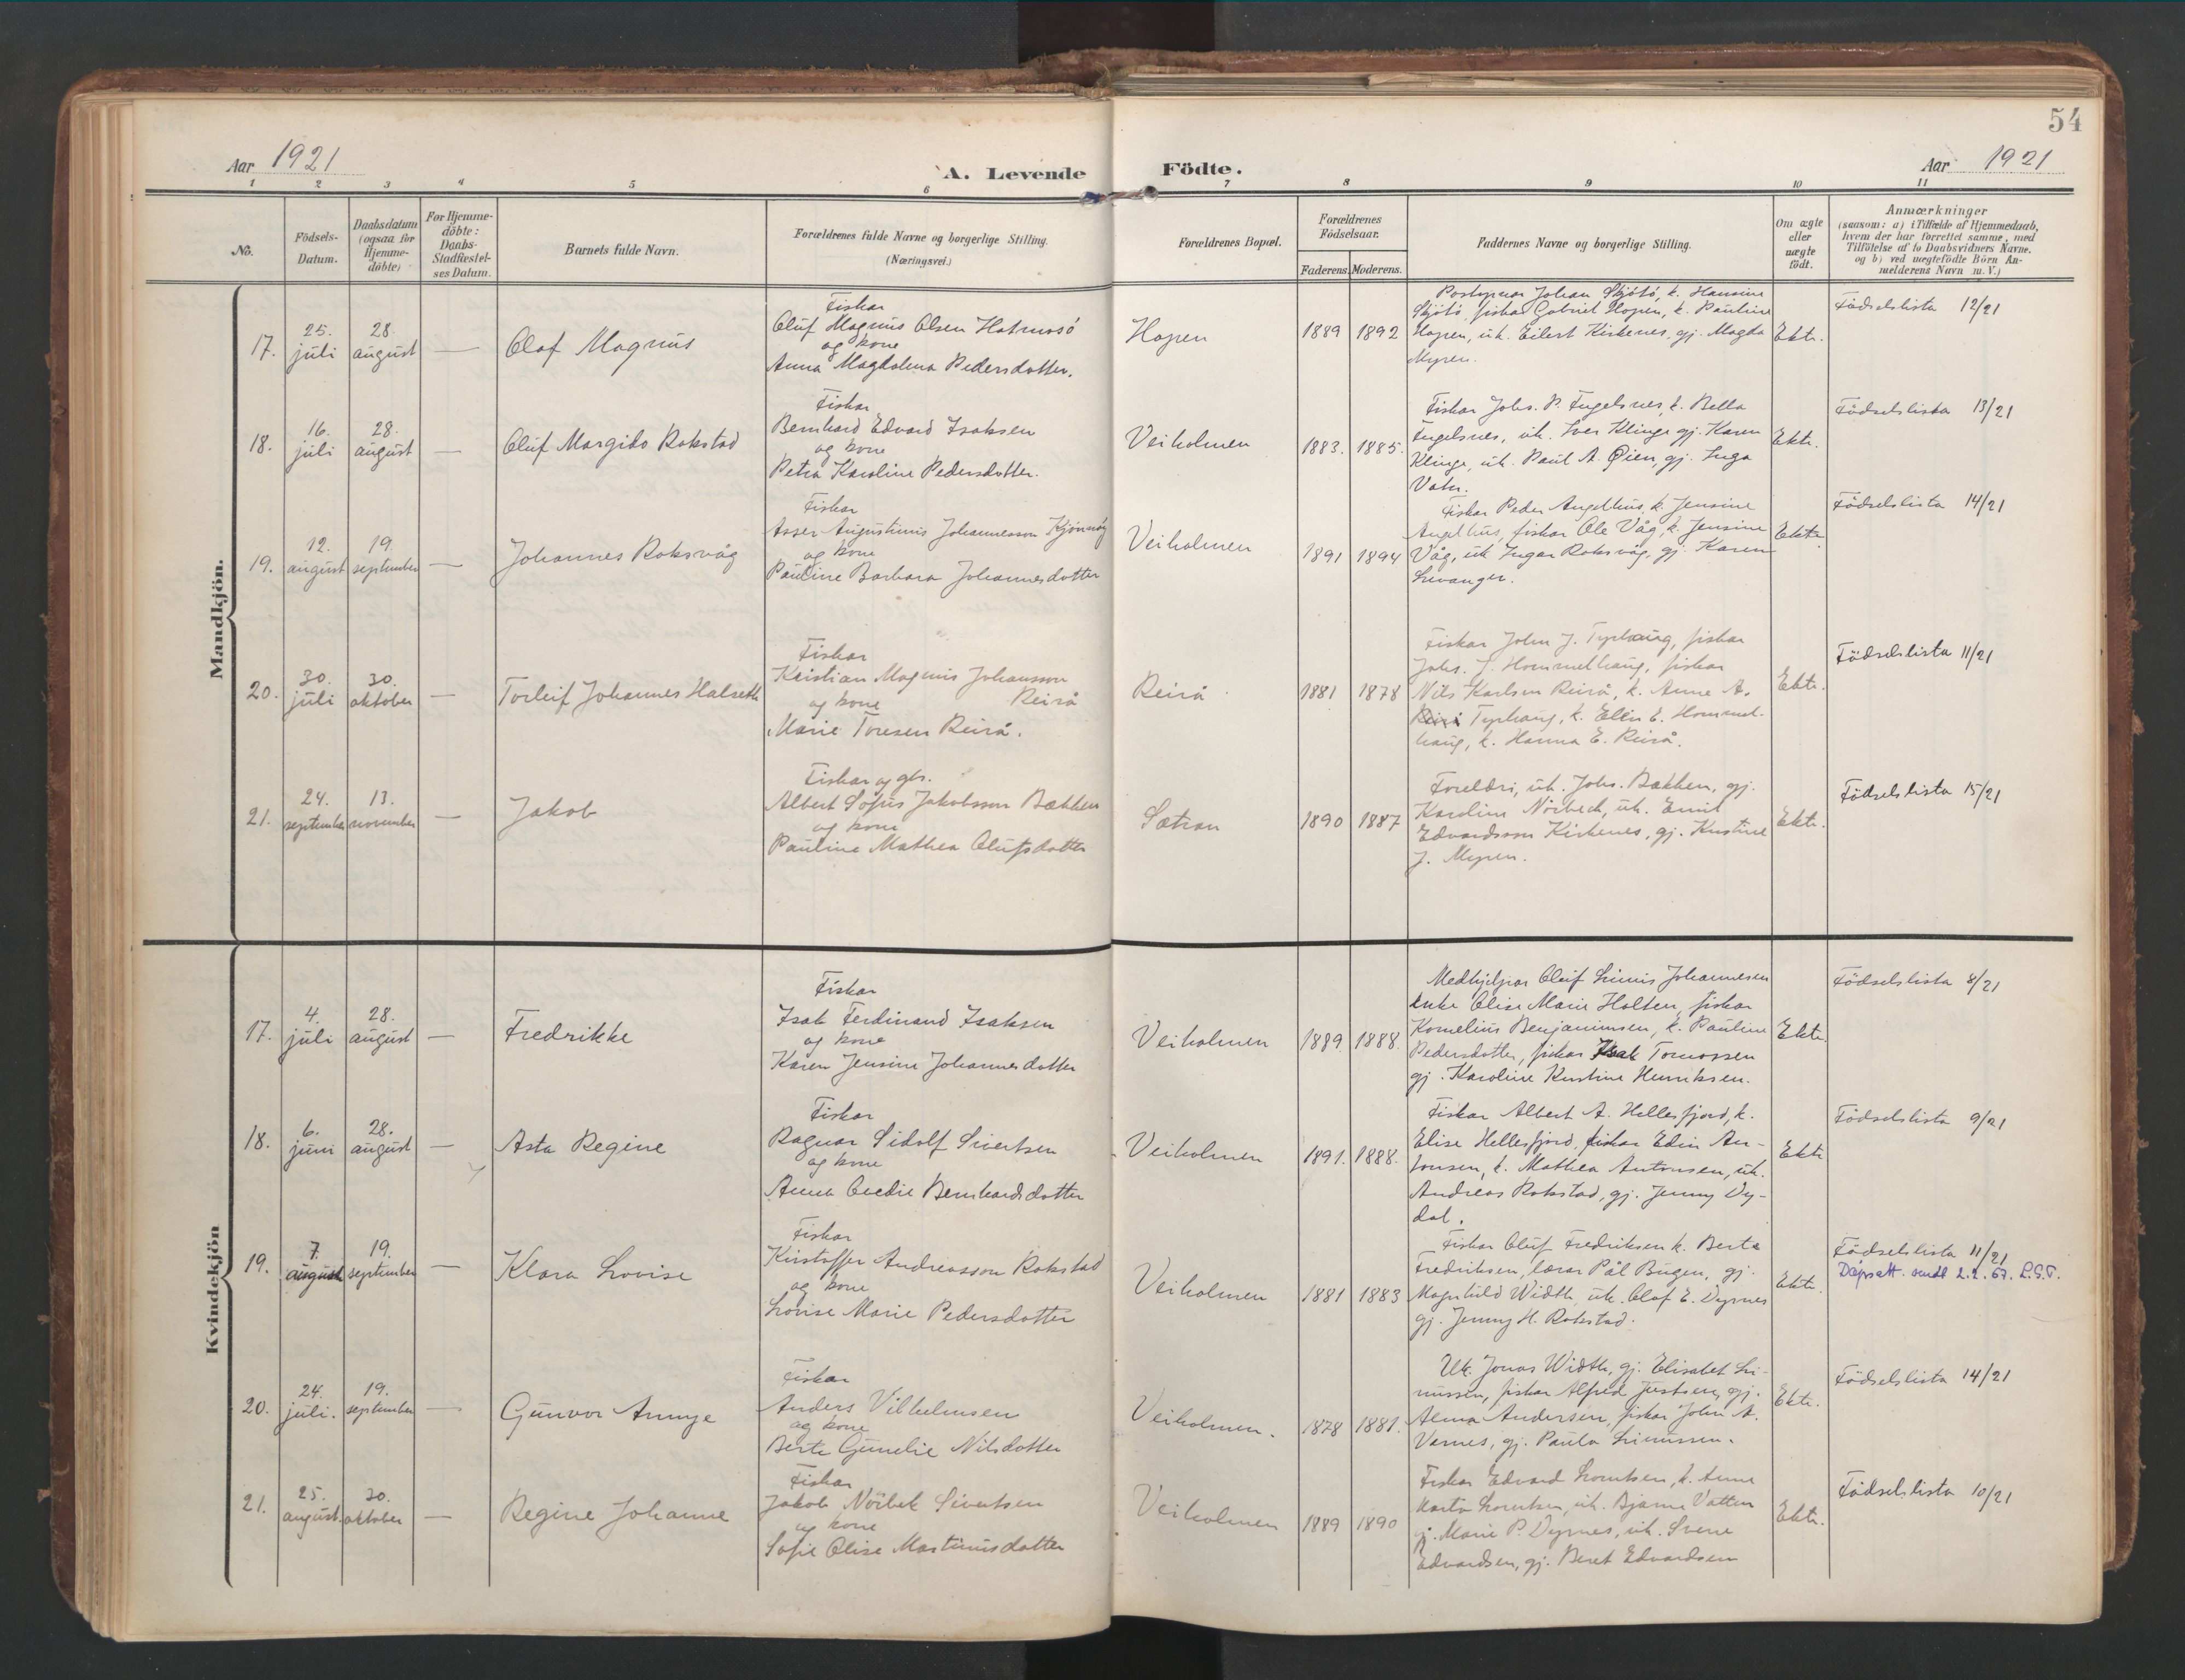 54
Aar 1921
A. Levende Födte.
Aar 1921
1 2 3 4 5 6 7 8 9 10 11
No.
Födsels-
Datum.
Daabsdatum
(ogsaa for
Hjemme-
döbte)
For Hjemme-
döbte:
Daabs-
Stadfæstel-
ses Datum.
Barnets fulde Navn.
Forældrenes fulde Navne og borgerlige Stilling.
(Næringsvei.)
Forældrenes Bopæl.
Forældrenes
Födselsaar.
Faderens. Moderens.
Faddernes Navne og borgerlige Stilling.
Om ægte
eller
uægte
födt.
Anmærkninger
(saasom: a) i Tilfælde af Hjemmedaab,
hvem der har forrettet samme, med
Tilföielse af to Daabsvidners Navne.
og b) ved uægtefödte Börn An-
melderens Navn m. V.)
Mandkjön.
17.
25.
juli
28.
august
—
Olaf Magnus
Fiskar
Oluf Magnus Olsen Hatmosö
og kone
Anna Magdalena Pedersdotter.
Hopen
1889 1892
Johan Skjölö, k. Hansine
Skjölö, fiskar Gabriel Hopen, k. Pauline
Hopen, uk. Eilert Kirkenes, gj. Magda
Myren.
Ekte.
Födselslista 12/21
18.
16.
juli
28.
august
—
Oluf Margido Rokstad
Fiskar
Bernhard Edvard Isaksen
og kone
Petra Karoline Pedersdotter.
Veiholmen
1883. 1885.
Fiskar Johs. P. Fugelsnes, k. Bella
Fugelsnes, uk. Iver Klinge gj. Karen
Klinge, uk. Paul A. Øien, gj. Inga
Vatn.
Ekte.
Födselslista 13/21
19.
12.
august
19.
september
—
Johannes Roksvåg
Fiskar
Asser Augustinus Johannesson Kjönnöy
og kone
Pauline Barbara Johannesdotter
Veiholmen
1891 1894
Fiskar Peder Angelhus, k. Jensine
Angelhus, fiskar Ole Våg, k. Jensine
Våg, uk. Ingar Roksvåg, gj. Karen
Levanger.
Ekte
Födselslista 14/21
20.
30.
juli
30.
oktober
—
Torleif Johannes Halseth
Fiskar
Kristian Magnus Johansson
og kone Reirå
Marie Toresen Reirå.
Reirå
1881 1878
Fiskar John J. Tyrhaug, fiskar
Johs. J. Hommelhaug, fiskar
Nils Karlsen Reirå, k. Anne A.
Tyrhaug, k. Elen E. Hommel-
haug, k. Hanna E. Reirå.
Ekte.
Födselslista 11/21
21.
24.
september
13.
november
—
Jakob
Fiskar og gbr.
Albert Sofus Jakobsson Bækken
og kone
Pauline Mathea Olufsdotter
Sætran
1890 1887
Foreldri, uk. Johs. Bækken, gj.
Karoline Nörbech, uk. Emil
Edvardsson Kirkenes, gj. Kristine
J. Myren.
Ekte.
Födselslista 15/21
Kvindekjön
17.
4.
juli
28.
august
—
Fredrikke
Fiskar
Isak Ferdinand Isaksen
og kone
Karen Jensine Johannesdotter
Veiholmen
1889. 1888.
Medhjelpar Oluf Linus Johannesen
enke Olise Marie Holten, fiskar
Kornelius Benjaminsen, k. Pauline
Pedersdotter, fiskar Isak Tomassen
gj. Karoline Kristine Henriksen.
Ekte.
Födselslista 8/21
18.
6.
juni
28.
august
—
Asta Regine
Fiskar
Ragnar Sidolf Sivertsen
og kone
Anna Bernhardsdotter
Veiholmen
1891. 1888.
Fiskar Albert A. Hellesfjord, k.
Elise Hellesfjord, fiskar Edin An-
tonsen, k. Mathea Antonsen, uk.
Andreas Rokstad, gj. Jenny Dy-
dal.
Ekte
Födselslista 9/21
19.
7.
august
19.
september
—
Klara Lovise
Fiskar
Kristoffer Andreasson Rokstad
og kone
Lovise Marie Pedersdotter
Veiholmen
1881 1883
Fiskar Oluf Fredriksen k. Berta
Fredriksen, lærar Pål Bugen, gj.
Magnhild Width, uk. Olaf E. Dyrnes
gj. Jenny H. Rokstad.
Ekte.
Födselslista 11/21
Dåpsatt. sendt 2.2.67. L.S.T.
20.
24.
juli.
19.
september
—
Gunvor Annye
Fiskar
Anders Vilhelmsen
og kone
Berte Gunelie Nilsdotter
Veiholmen.
1878 1881.
Uk. Jonas Width, gj. Elisabet Li-
nussen, fiskar Alfred Justsen, gj.
Alma Andersen, fiskar John A.
Varnes, gj. Paula Linussen.
Ekte.
Födselslista 14/21
21.
25.
august.
30.
oktober
—
Regine Johanne
Fiskar
Jakob Nörbek Sivertsen
og kone
Sofie Olise Martinusdotter
Veiholmen
1889 1890
Fiskar Edvard Lorntsen, k. Anne
Marta Lorntsen, uk. Bjarne Vatten
gj. Marie P. Dyrnes, uk. Sverre
Edvardsen, gj. Beret Edvardsen
Ekte.
Födselslista 10/21